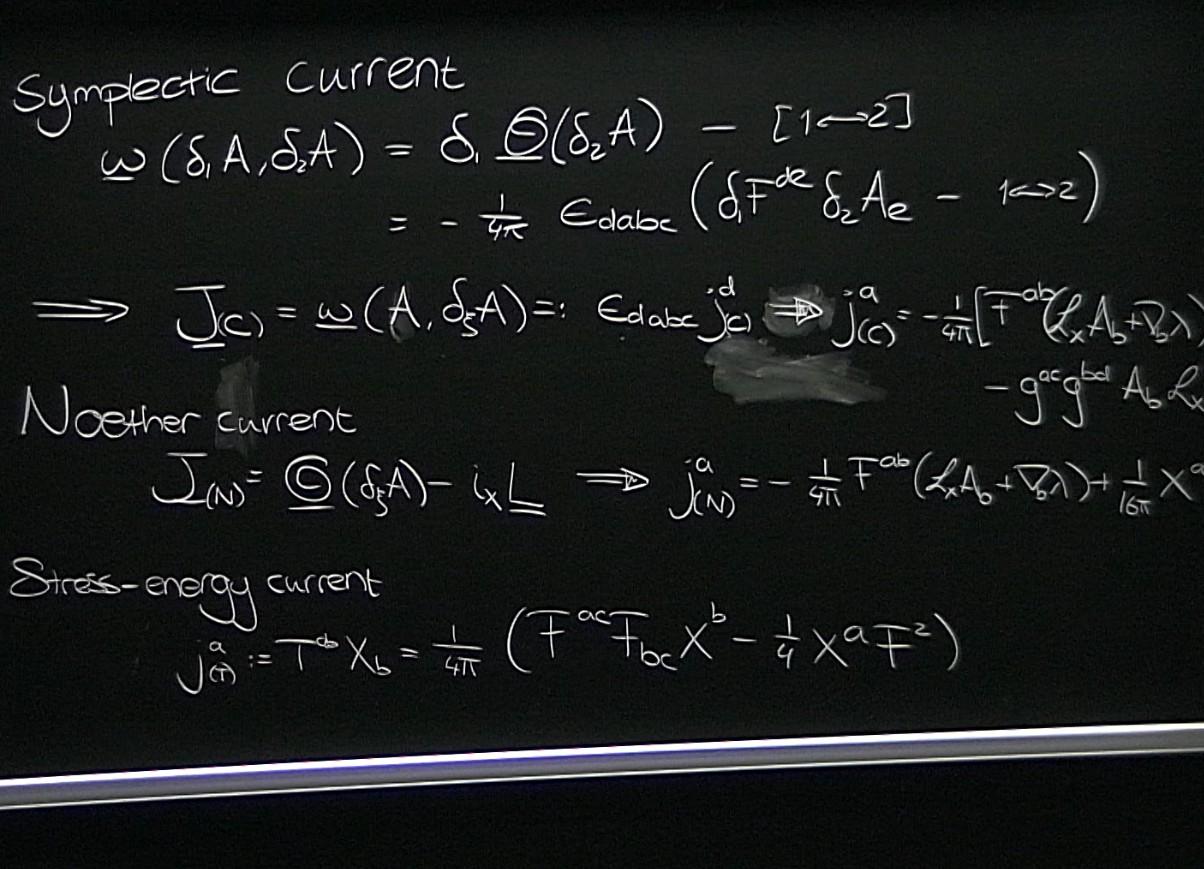 Symplectic current
ω(δ₁A, δ₂A) = δ₁ Θ(δ₂A) − [1↔2]
= − 1/4π ϵ_{dabc} (δ₁F^{de} δ₂A_e − 1↔2)
⟹ J_(C) = ω(A, δ_ξA) =: ϵ_{dabc} j^d_(C) ⟹ j^a_(C) = − 1/4π [F^{ab}(ℒ_x A_b + ∇_b λ)
− g^{ac} g^{bd} A_b ℒ_x
Noether current
J_(N) = Θ(δ_ξA) − i_x L ⟹ j^a_(N) = − 1/4π F^{ab} (ℒ_x A_b + ∇_b λ) + 1/16π X^a
Stress-energy current
j^a_(T) := T^{ab} X_b = 1/4π (F^{ac} F_{bc} X^b − 1/4 X^a F²)